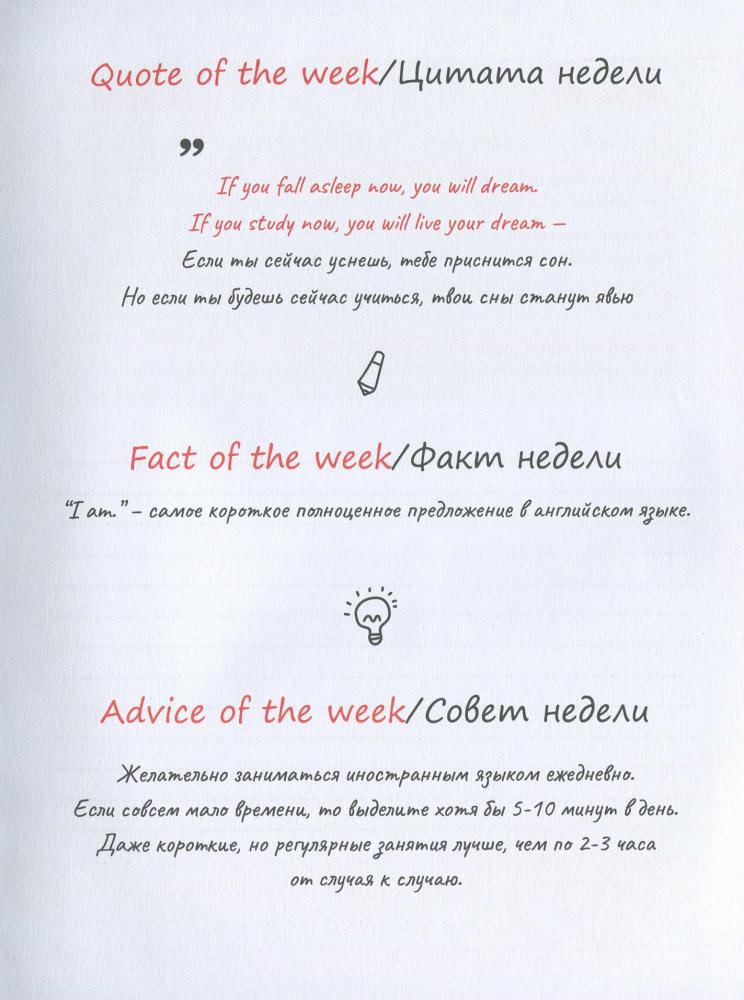 Quote of the week/Цитата недели
”
If you fall asleep now, you will dream.
If you study now, you will live your dream –
Если ты сейчас уснешь, тебе приснится сон.
Но если ты будешь сейчас учиться, твои сны станут явью
Fact of the week/Факт недели
“I am.” – самое короткое полноценное предложение в английском языке.
Advice of the week/Совет недели
Желательно заниматься иностранным языком ежедневно.
Если совсем мало времени, то выделите хотя бы 5-10 минут в день.
Даже короткие, но регулярные занятия лучше, чем по 2-3 часа
от случая к случаю.